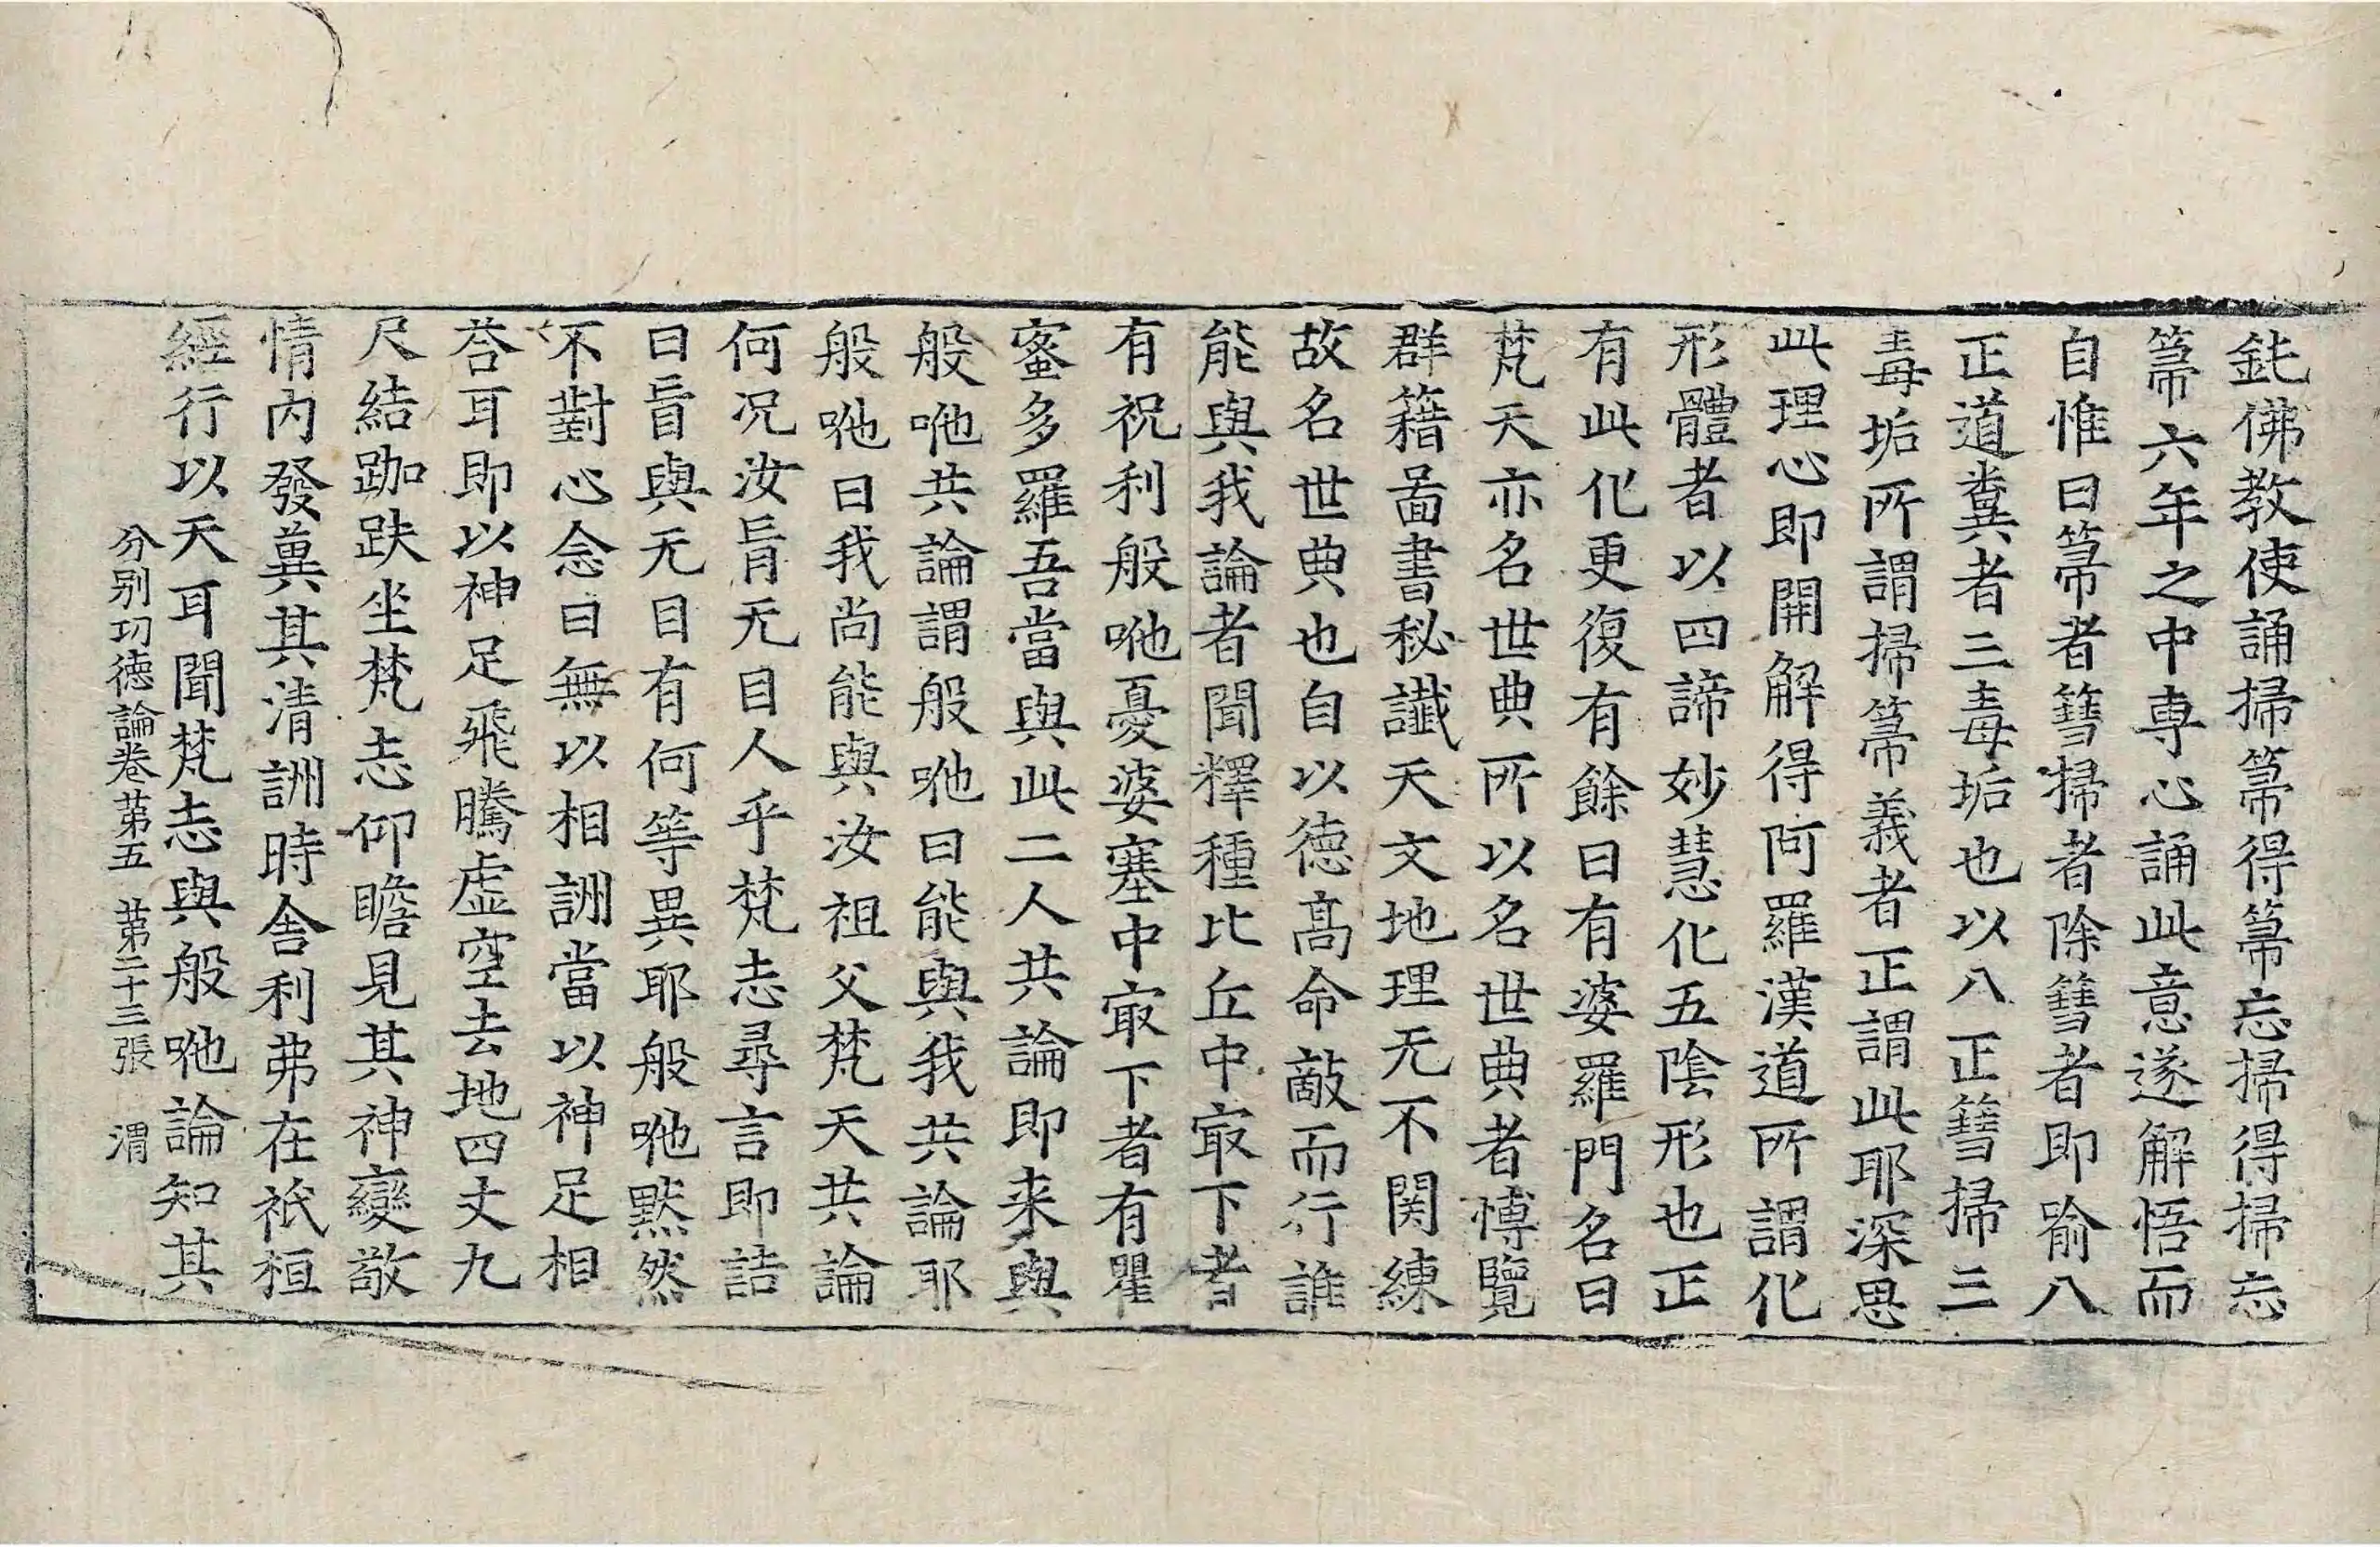 鈍佛教使誦掃箒得箒忘掃得掃忘
箒六年之中専心誦此意遂解悟而
自惟曰箒者篲掃者除篲者即喻八
正道糞者三毒垢也以八正篲掃三
毒垢所謂掃箒義者正謂此耶深思
此理心即開解得阿羅漢道所謂化
形體者以四諦妙慧化五陰形也正
有此化更復有餘曰有婆羅門名曰
梵天亦名世典所以名世典者博覽
群籍啚書秘讖天文地理无不関練
故名世典也自以徳髙命敵而行誰
能與我論者聞釋種比丘中㝡下者
有祝利般咃憂婆塞中㝡下者有瞿
蜜多羅吾當與此二人共論即来與
般咃共論謂般咃曰能與我共論耶
般咃曰我尚能與汝祖父梵天共論
何况汝盲无目人乎梵志尋言即詰
曰盲與无目有何等異耶般咃黙然
不對心念曰無以相詶當以神足相
荅耳即以神足飛騰虚空去地四丈九
尺結跏趺坐梵志仰瞻見其神變敬
情内發兾其清詶時舎利弗在祇桓
經行以天耳聞梵志與般咃論知其
分别功徳論卷苐五　苐二十三張　渭